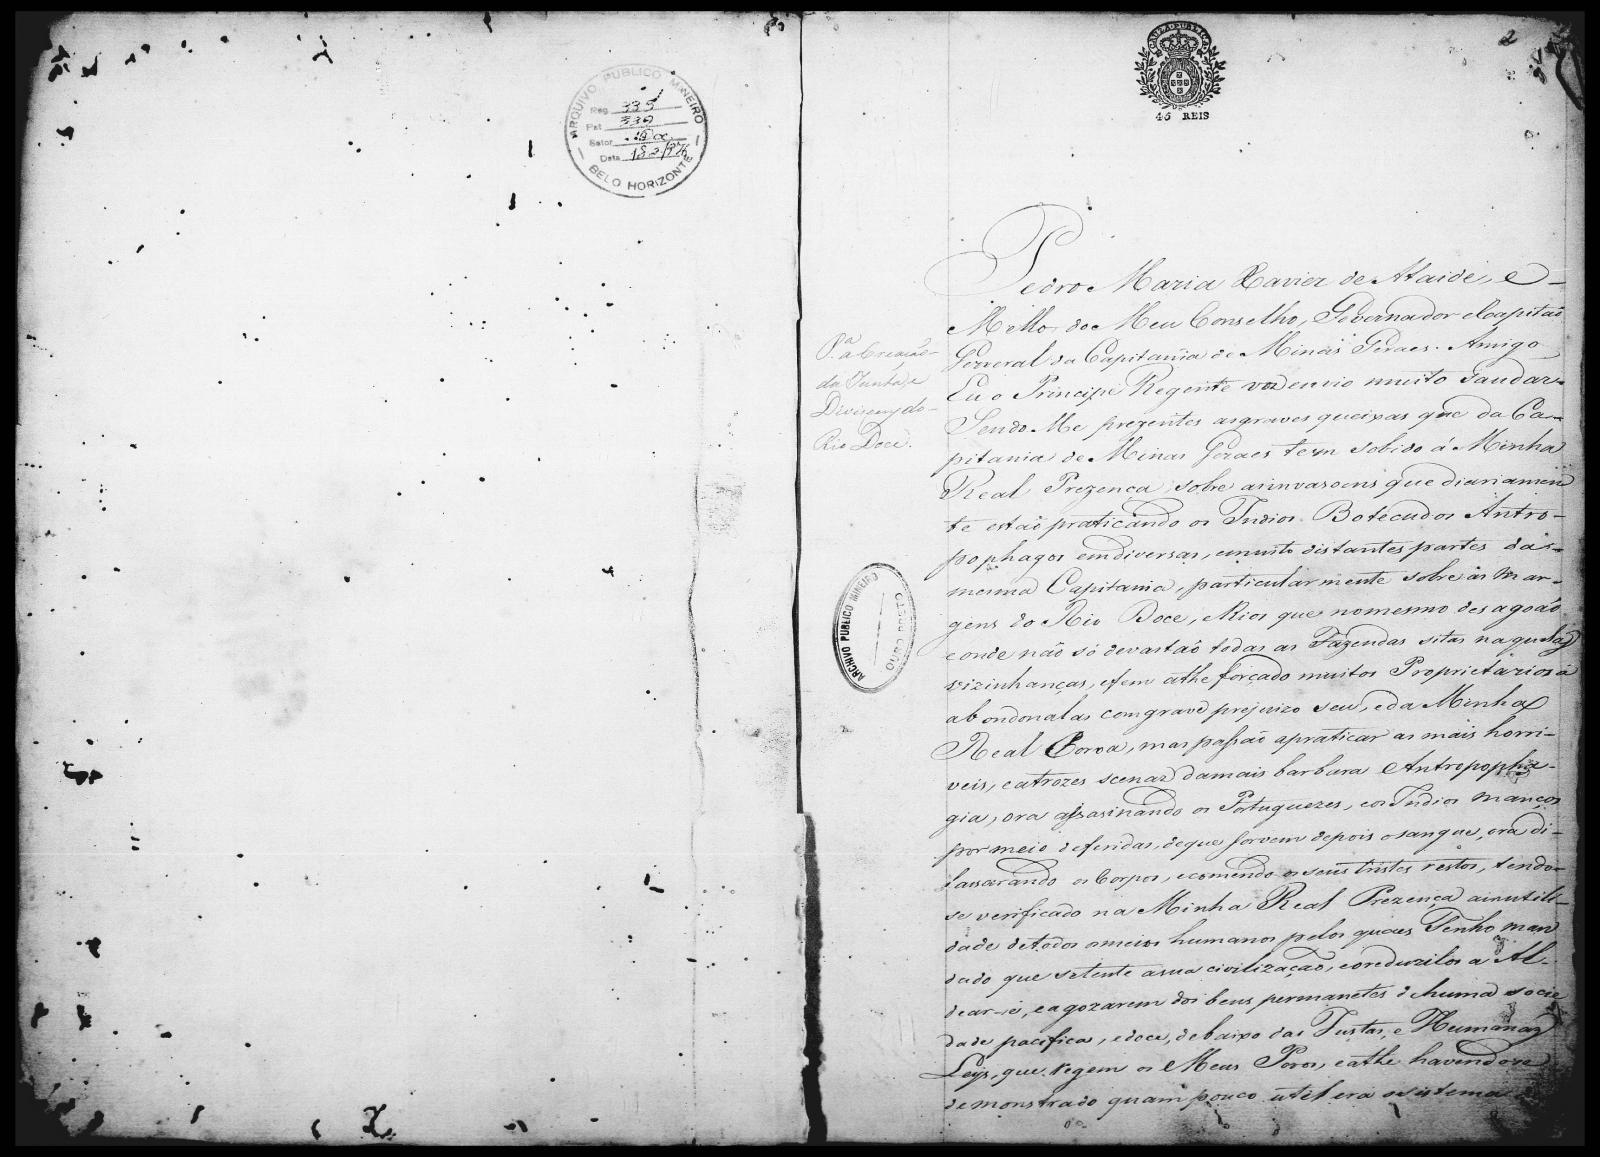 ARQUIVO PUBLICO MINEIRO
Reg 335
Pat 339
Setor Doc
Data 18-2-1976
BELO HORIZONTE
CAUZA PUBLICA
45 REIS
2
Pedro Maria Xavier de Ataide, e
Mello do Meu Conselho, Governador e Capitaõ
General da Capitania de Minas Geraes. Amigo
Eu o Principe Regente vos envio muito saudar.
Sendo Me prezentes as graves queixas que da Ca-
pitania de Minas Geraes tem sobido á Minha
Real Prezença sobre as invasoens que diariamen
te estaõ praticando os Indios Botecudos Antro-
pophagos em diversas, e muito distantes partes da
mesma Capitania, particularmente sobre as mar-
gens do Rio Doce, e Rios que no mesmo desagoaõ
e onde naõ só devastaõ todas as Fazendas sitas naquelas
vizinhanças, e tem athe forçado muitos Proprietarios a
abondonalas com grave prejuizo seu, e da Minha
Real Coroa, mas passaõ a praticar as mais horri-
veis, e atrozes scenas da mais barbara Antropopha-
gia, ora assasinando os Portuguezes, e os Indios mançoz
por meio de feridas, de que sorvem depois o sangue, ora di-
lassarando os Corpos, e comendo os seus tristes restos, tendo-
se verificado na Minha Real Prezença a inutili-
dade de todos os meios humanos pelos quaes Tenho man
dado que se tente a sua civilizaçaõ, e o reduzilos a Al-
dear-se, e a gozarem dos bens permanetes de huma socie
dade pacifica, e doce, debaixo das Justas, e Humanas
Leys, que regem os Meus Povos, e athe havendose
demonstrado quam pouco util era o sistema
P.ª a Creaçaõ
da Junta, e
Divisoens do
Rio Doce.
ARCHIVO PUBLICO MINEIRO
OURO PRETO